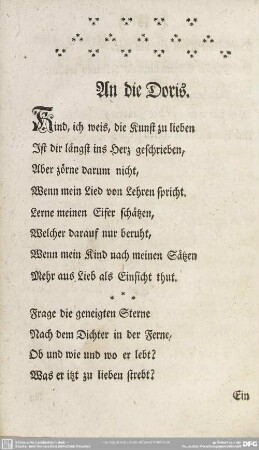 An die Doris.
Kind, ich weis, die Kunst zu lieben
Ist dir längst ins Herz geschrieben,
Aber zörne darum nicht,
Wenn mein Lied von Lehren spricht.
Lerne meinen Eifer schätzen,
Welcher darauf nur beruht,
Wenn mein Kind nach meinen Sätzen
Mehr aus Lieb als Einsicht thut.
* * *
Frage die geneigten Sterne
Nach dem Dichter in der Ferne,
Ob und wie und wo er lebt?
Was er itzt zu lieben strebt?
Ein